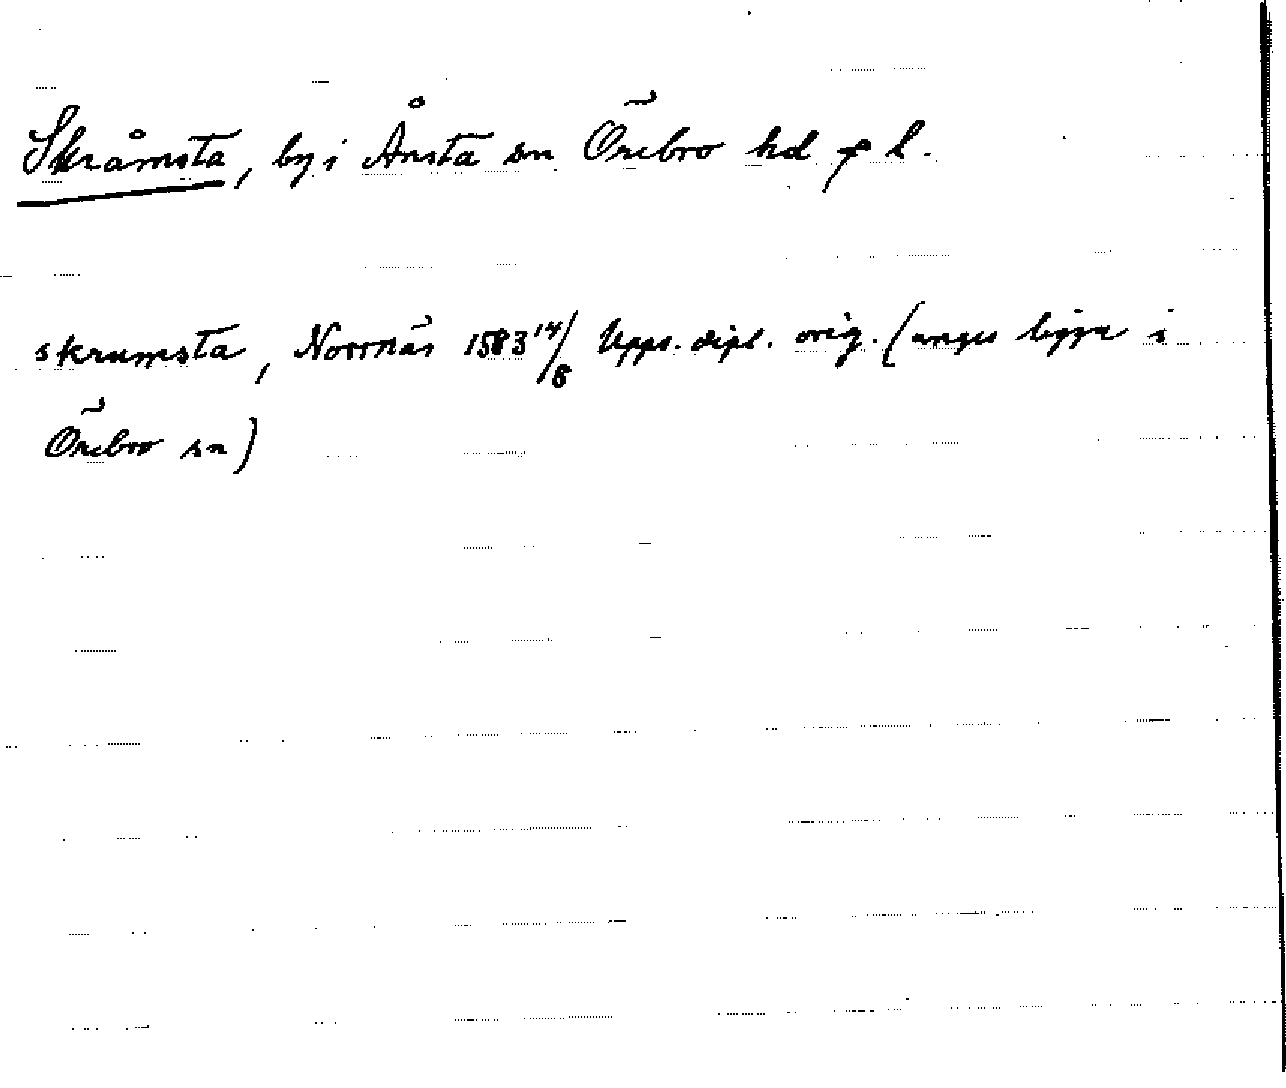 Skråmsta, by i Ånsta sn Örebro hd o l.
skrumsta, Norrnäs 1583 14/8 Upps. dipl. orig. (anges ligga i
Örebro sn)